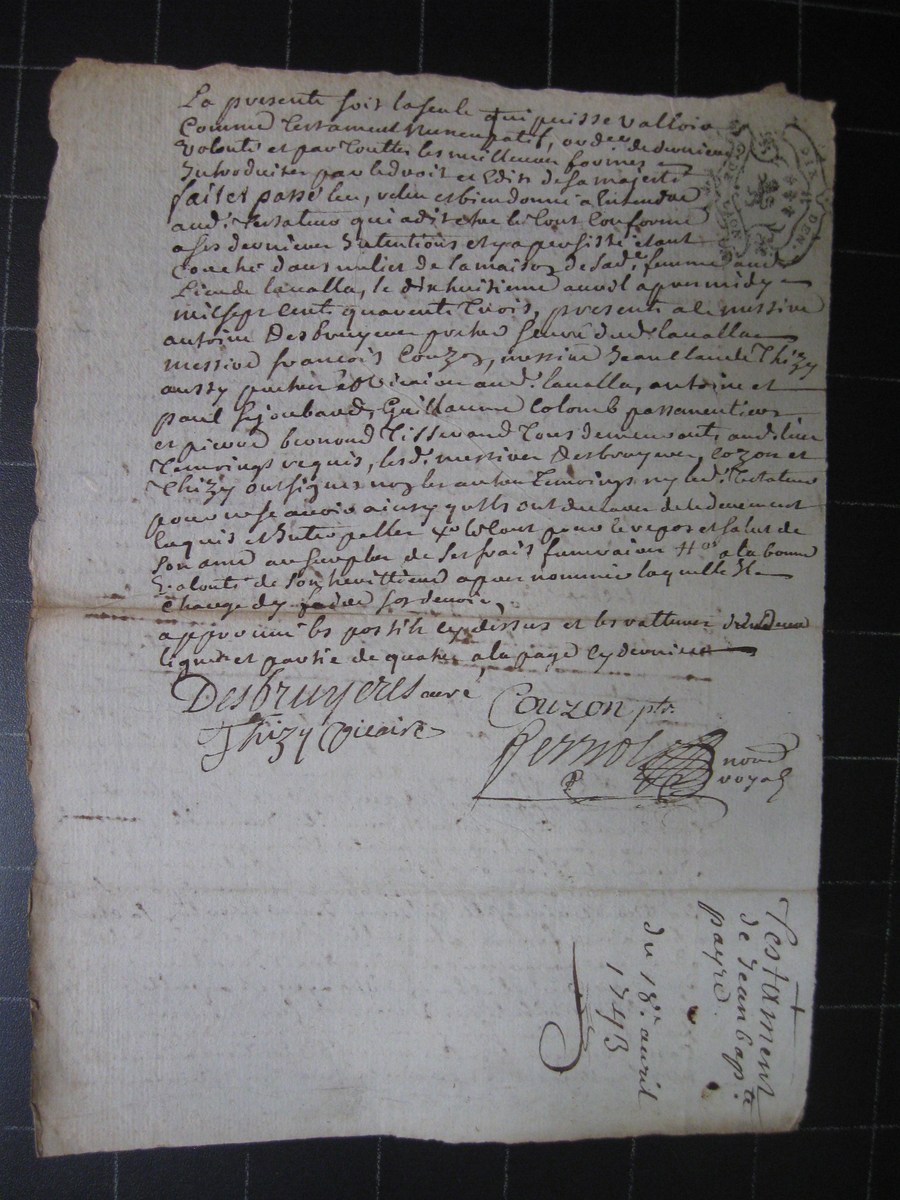 La presente soit la seule qui puisse valloir
Comme testament Nuncupatif, ou der.re de derniere
Volonté et par touttes les meilleures formes
Introduites par le droit et Edits de sa majesté
fait et passé leu, releu et bien donné a Entendre
aud. testateur qui a dit etre le tout Conforme
a ses dernieres Intentions et y a persisté etant
Couché dans un lict de la maison de sad.e femme aud.
Lieu de lavalla, le dixhuitieme avril apres midy
mil sept cents quarente trois, presents a ce messire
antoine Desbruyeres pretre Curé dud. lavalla
messire françois Couzon, messire Jean Claude Thizy
aussy pretre et Vicaire aud. lavalla, antoine et
paul Guillaume Colomb passementiers
et pierre tisserand tous demeurants aud. lieu
temoings requis, lesd. messires Desbruyeres, Cozon et
Thizy ont signés non les autres temoings ny led. testateur
pour ne scavoir ainsy qu'ils ont declarer de ce deuement
Enquis et Interpellés le tout pour le repos et salut de
son ame au Surplus de ses frais funeraires a la bonne
Volonté de son herittiere apres nommée laquelle Il
Charge d'y faire son devoir,
approuvé les postille cy dessus et les ratture de deux
lignes et partie de quatre a la page cy derniere
Desbruyeres curé Couzon ptr.
Thizy Vicaire
Pernol no.re
royal
Testament
de Jean bap.te
payre
du 18.e avril
1743
DEN.